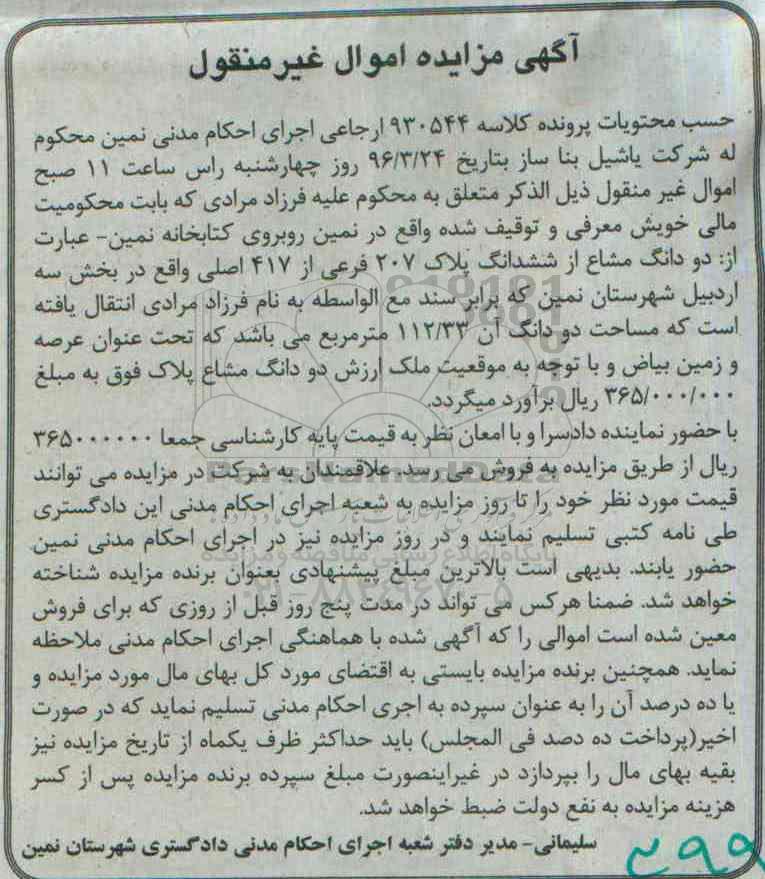 آگهی مزایده اموال غیرمنقول
حسب محتویات پرونده کلاسه ۹۳۰۵۴۴ ارجاعی اجرای احکام مدنی نمین محکوم
له شرکت یاشیل بنا ساز بتاریخ ۹۶/۳/۲۴ روز چهارشنبه راس ساعت ۱۱ صبح
اموال غیر منقول ذیل الذکر متعلق به محکوم علیه فرزاد مرادی که بابت محکومیت
مالی خویش معرفی و توقیف شده واقع در نمین روبروی کتابخانه نمین- عبارت
از: دو دانگ مشاع از ششدانگ پلاک ۲۰۷ فرعی از ۴۱۷ اصلی واقع در بخش سه
اردبیل شهرستان نمین که برابر سند مع الواسطه به نام فرزاد مرادی انتقال یافته
است که مساحت دو دانگ آن ۱۱۲/۳۳ مترمربع می باشد که تحت عنوان عرصه
و زمین بیاض و با توجه به موقعیت ملک ارزش دو دانگ مشاع پلاک فوق به مبلغ
۳۶۵/۰۰۰/۰۰۰ ریال برآورد میگردد.
با حضور نماینده دادسرا و با امعان نظر به قیمت پایه کارشناسی جمعا ۳۶۵۰۰۰۰۰۰
ریال از طریق مزایده به فروش می رسد. علاقمندان به شرکت در مزایده می توانند
قیمت مورد نظر خود را تا روز مزایده به شعبه اجرای احکام مدنی این دادگستری
طی نامه کتبی تسلیم نمایند و در روز مزایده نیز در اجرای احکام مدنی نمین
حضور یابند. بدیهی است بالاترین مبلغ پیشنهادی بعنوان برنده مزایده شناخته
خواهد شد. ضمنا هرکس می تواند در مدت پنج روز قبل از روزی که برای فروش
معین شده است اموالی را که آگهی شده با هماهنگی اجرای احکام مدنی ملاحظه
نماید. همچنین برنده مزایده بایستی به اقتضای مورد کل بهای مال مورد مزایده و
یا ده درصد آن را به عنوان سپرده به اجری احکام مدنی تسلیم نماید که در صورت
اخیر(پرداخت ده دصد فی المجلس) باید حداکثر ظرف یکماه از تاریخ مزایده نیز
بقیه بهای مال را بپردازد در غیراینصورت مبلغ سپرده برنده مزایده پس از کسر
هزینه مزایده به نفع دولت ضبط خواهد شد.
سلیمانی- مدیر دفتر شعبه اجرای احکام مدنی دادگستری شهرستان نمین